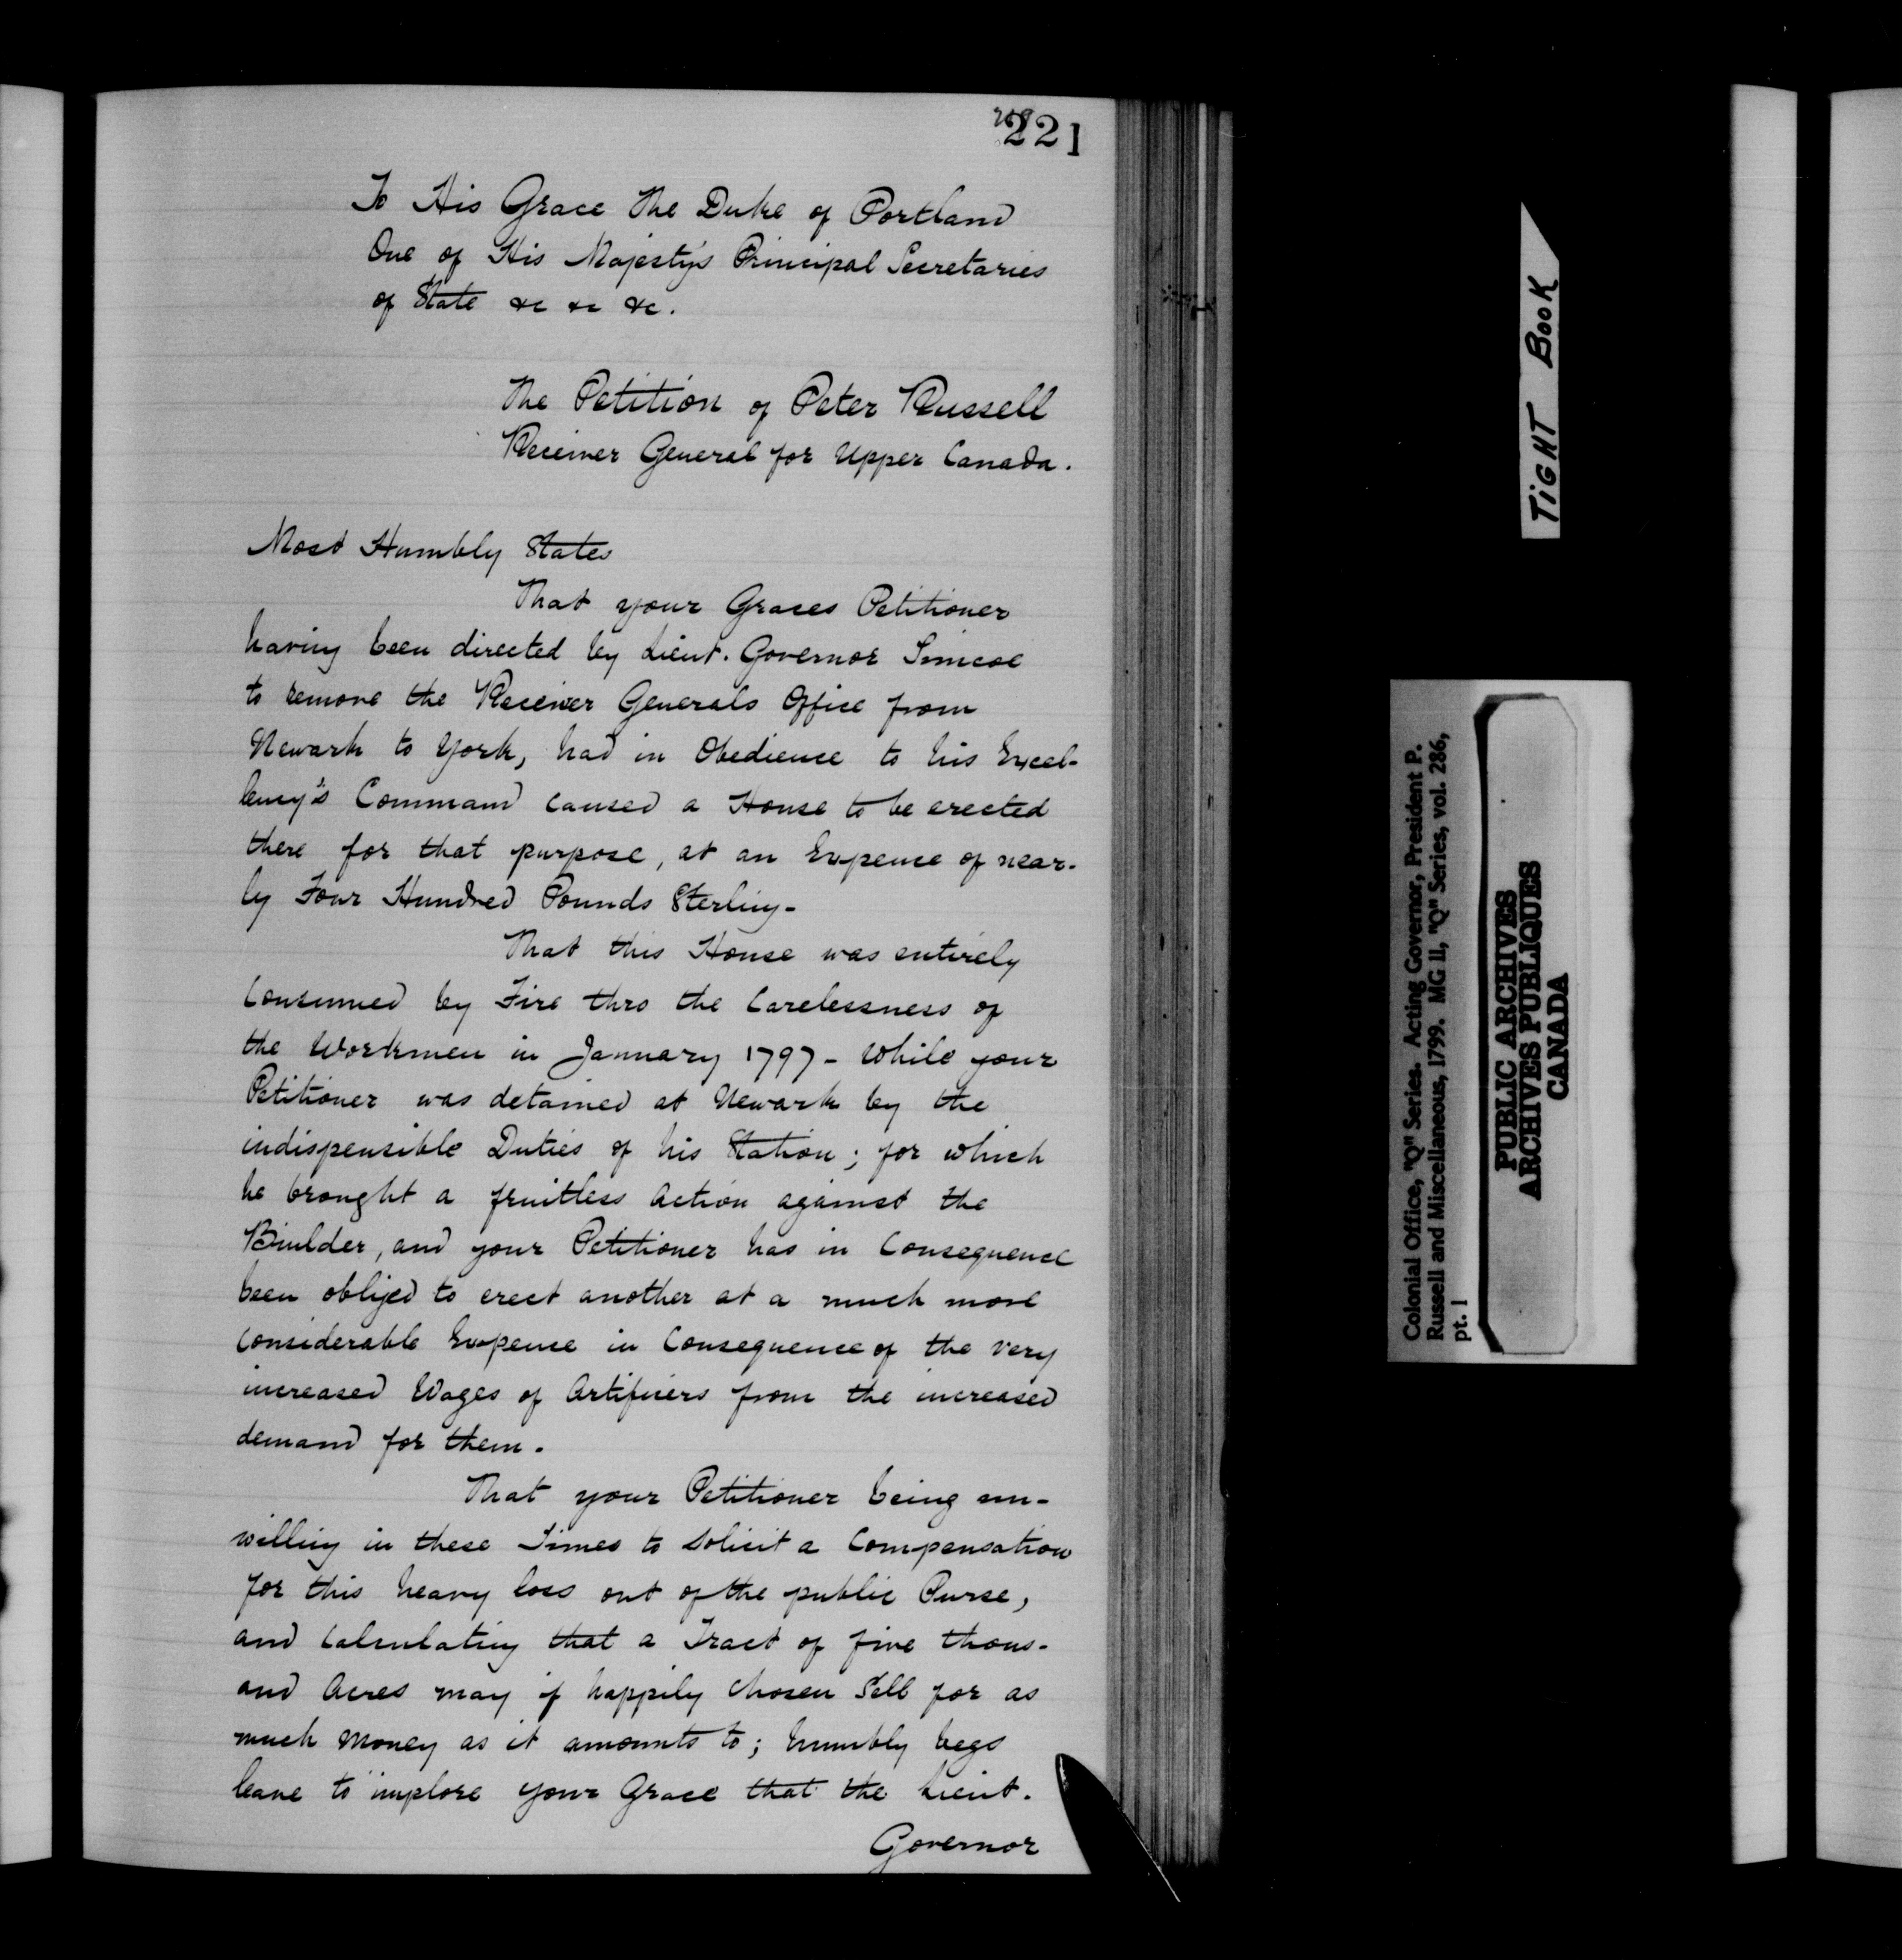 221
To His Grace The Duke of Portland
One of His Majesty's Principal Secretaries
of State &c &c &c.
The Petition of Peter Russell
Receiver General for Upper Canada.
Most Humbly States
That your Graces Petitioner
having been directed by Lieut. Governor Simcoe
to remove the Receiver Generals Office from
Newark to York, had in Obedience to his Excel-
lency's Command caused a House to be erected
there for that purpose, at an Expence of near-
ly Four Hundred Pounds Sterling-
That this House was entirely
Consumed by Fire thro the Carelessness of
the Workmen in January 1797- while your
Petitioner was detained at Newark by the
indispensible Duties of his Station; for which
he brought a fruitless Action against the
Builder, and your Petitioner has in Consequence
been obliged to erect another at a much more
Considerable Expence in Consequence of the very
increased Wages of Artificers from the increased
demand for them.
That your Petitioner being un-
willing in these Times to Solicit a Compensation
for this heavy loss out of the public Purse,
and Calculating that a Tract of five thous-
and Acres may if happily chosen Sell for as
much Money as it amounts to; humbly begs
leave to implore your Grace that the Lieut.
Governor
TIGHT BOOK
Colonial Office, "Q" Series. Acting Governor, President P.
Russell and Miscellaneous, 1799. MG 11, "Q" Series, vol. 286,
pt. 1
PUBLIC ARCHIVES
ARCHIVES PUBLIQUES
CANADA